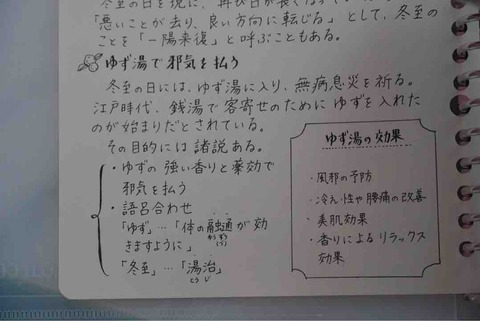 冬至の日を境に、再び日が長くな
「悪いことが去り、良い方向に転じる」として、冬至の
ことを「一陽来復」と呼ぶこともある。
ゆず湯で邪気を払う
冬至の日には、ゆず湯に入り、無病息災を祈る。
江戸時代、銭湯で客寄せのためにゆずを入れた
のが始まりだとされている。
その目的には諸説ある。
・ゆずの強い香りと薬効で
邪気を払う
・語呂合わせ
「ゆず」…「体の融通が効
ゆうずう
(づ)
きますように」
「冬至」…「湯治」
とうじ
ゆず湯の効果
・風邪の予防
・冷え性や腰痛の改善
・美肌効果
・香りによるリラックス
効果